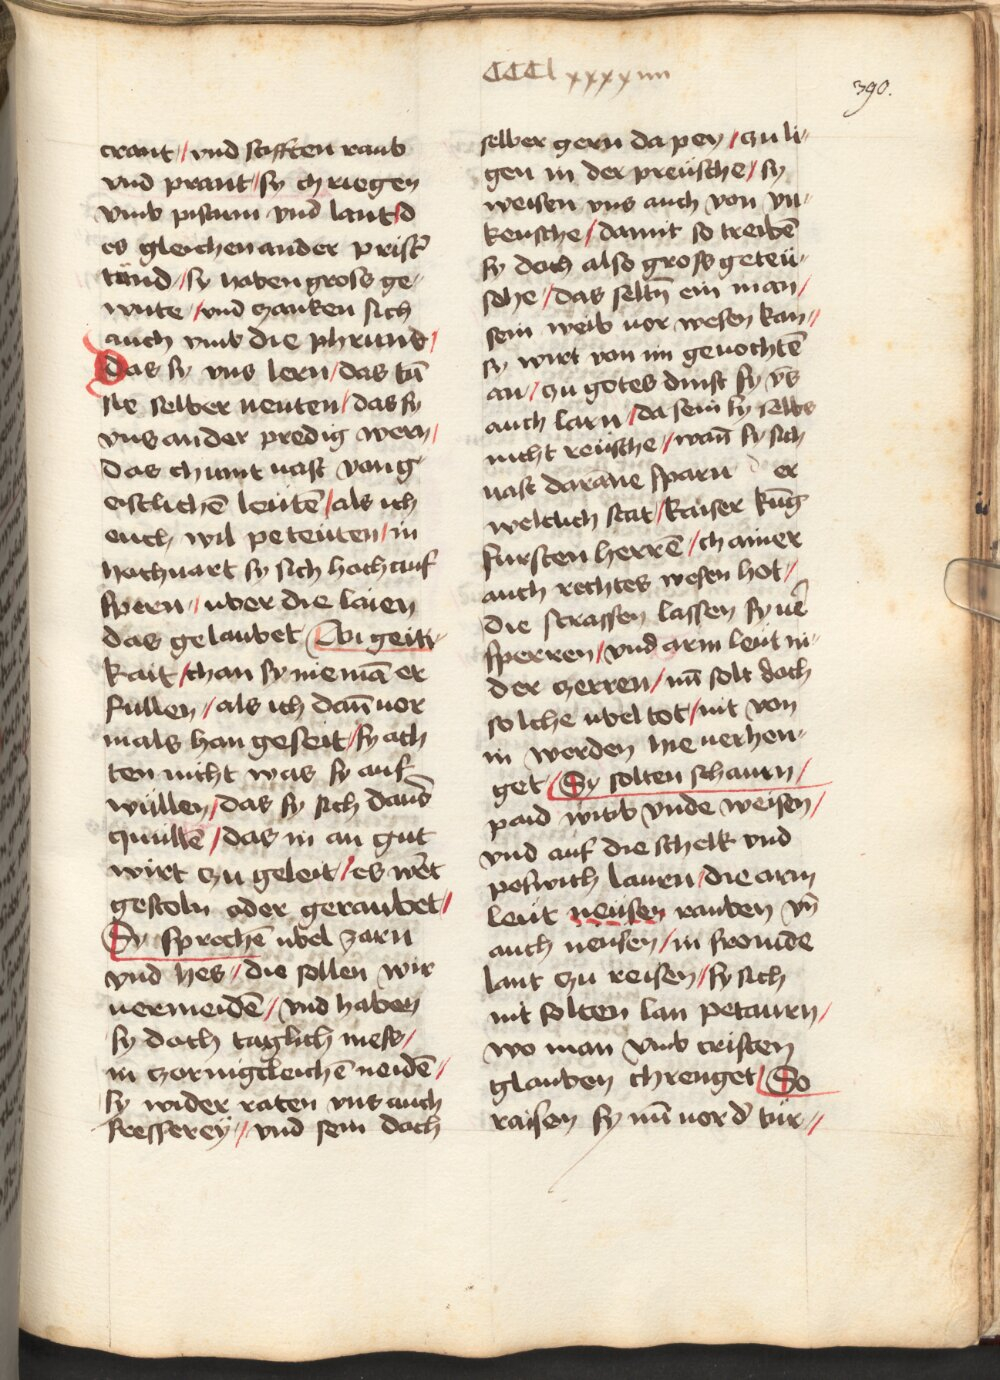 CCCl xxxxiiii
390.
crant / vnd stifften raub
vnd prant / sy chriegen
vmb pistum vnd lant / d
es gleichen ander prister
tand / sy haben gross ge-
mute / vnd zanken sich
auch vmb die phrund /
Das sy vns lern / das tun
sie selber neuten / das sy
vns ander predig wern /
das chumt vast von g
eistlichē leutē / als ich
euch wil peteuten / in
hochuart sy sich hoch auf
spern / uber die laien
das gelaubet Di geiti-
kait / chan sy niemā er
fullen / als ich dan vor
mals han geseit / sy ach
ten nicht was sy auf
wullen / das sy sich
/ das in an gut
wirt zu geleit / es wert
gestoln oder geraubet /
Sy sprechē ubel zarn
vnd hes / die sollen wir
uermeidē / vnd haben
sy doch taglich mess /
in zornigcleichē neidē /
sy wider raten vns auch
fresserey // vnd sein doch
selber gern da pey / zu li-
gen in der preusche / sy
weisen vns auch von vn-
keusche / damit so treibē
sy doch also gross geteu-
sche / das seltn ein man /
sein weib uor wesen kan //
sy wirt von im geuochtē
an / zu gotes dinst sy vns
auch larn / da sein sy selbs
nicht reusche / wan sy sich
vast darāne sparn er
weltlich stat / kaiser kung
fursten herrē / ch ainer
auch rechtes wesen hot /
die strassen lassen sy uer
sperren / vnd arm leut ni-
der zerren / nu solt doch
solche ubeltot / nit von
in werden hie uerhen-
get / Sy solten schaurn /
paid witib vnde weisen /
vnd auf die schelk vnd
poswich laurn / die arm
leut neusen rauben vn
auch neusen / in fromde
lant zu reisen / sy sich
nit solten lan petaurn /
wo man vmb cristen
glauben chrenget / So
raisen sy nu uor der tur //